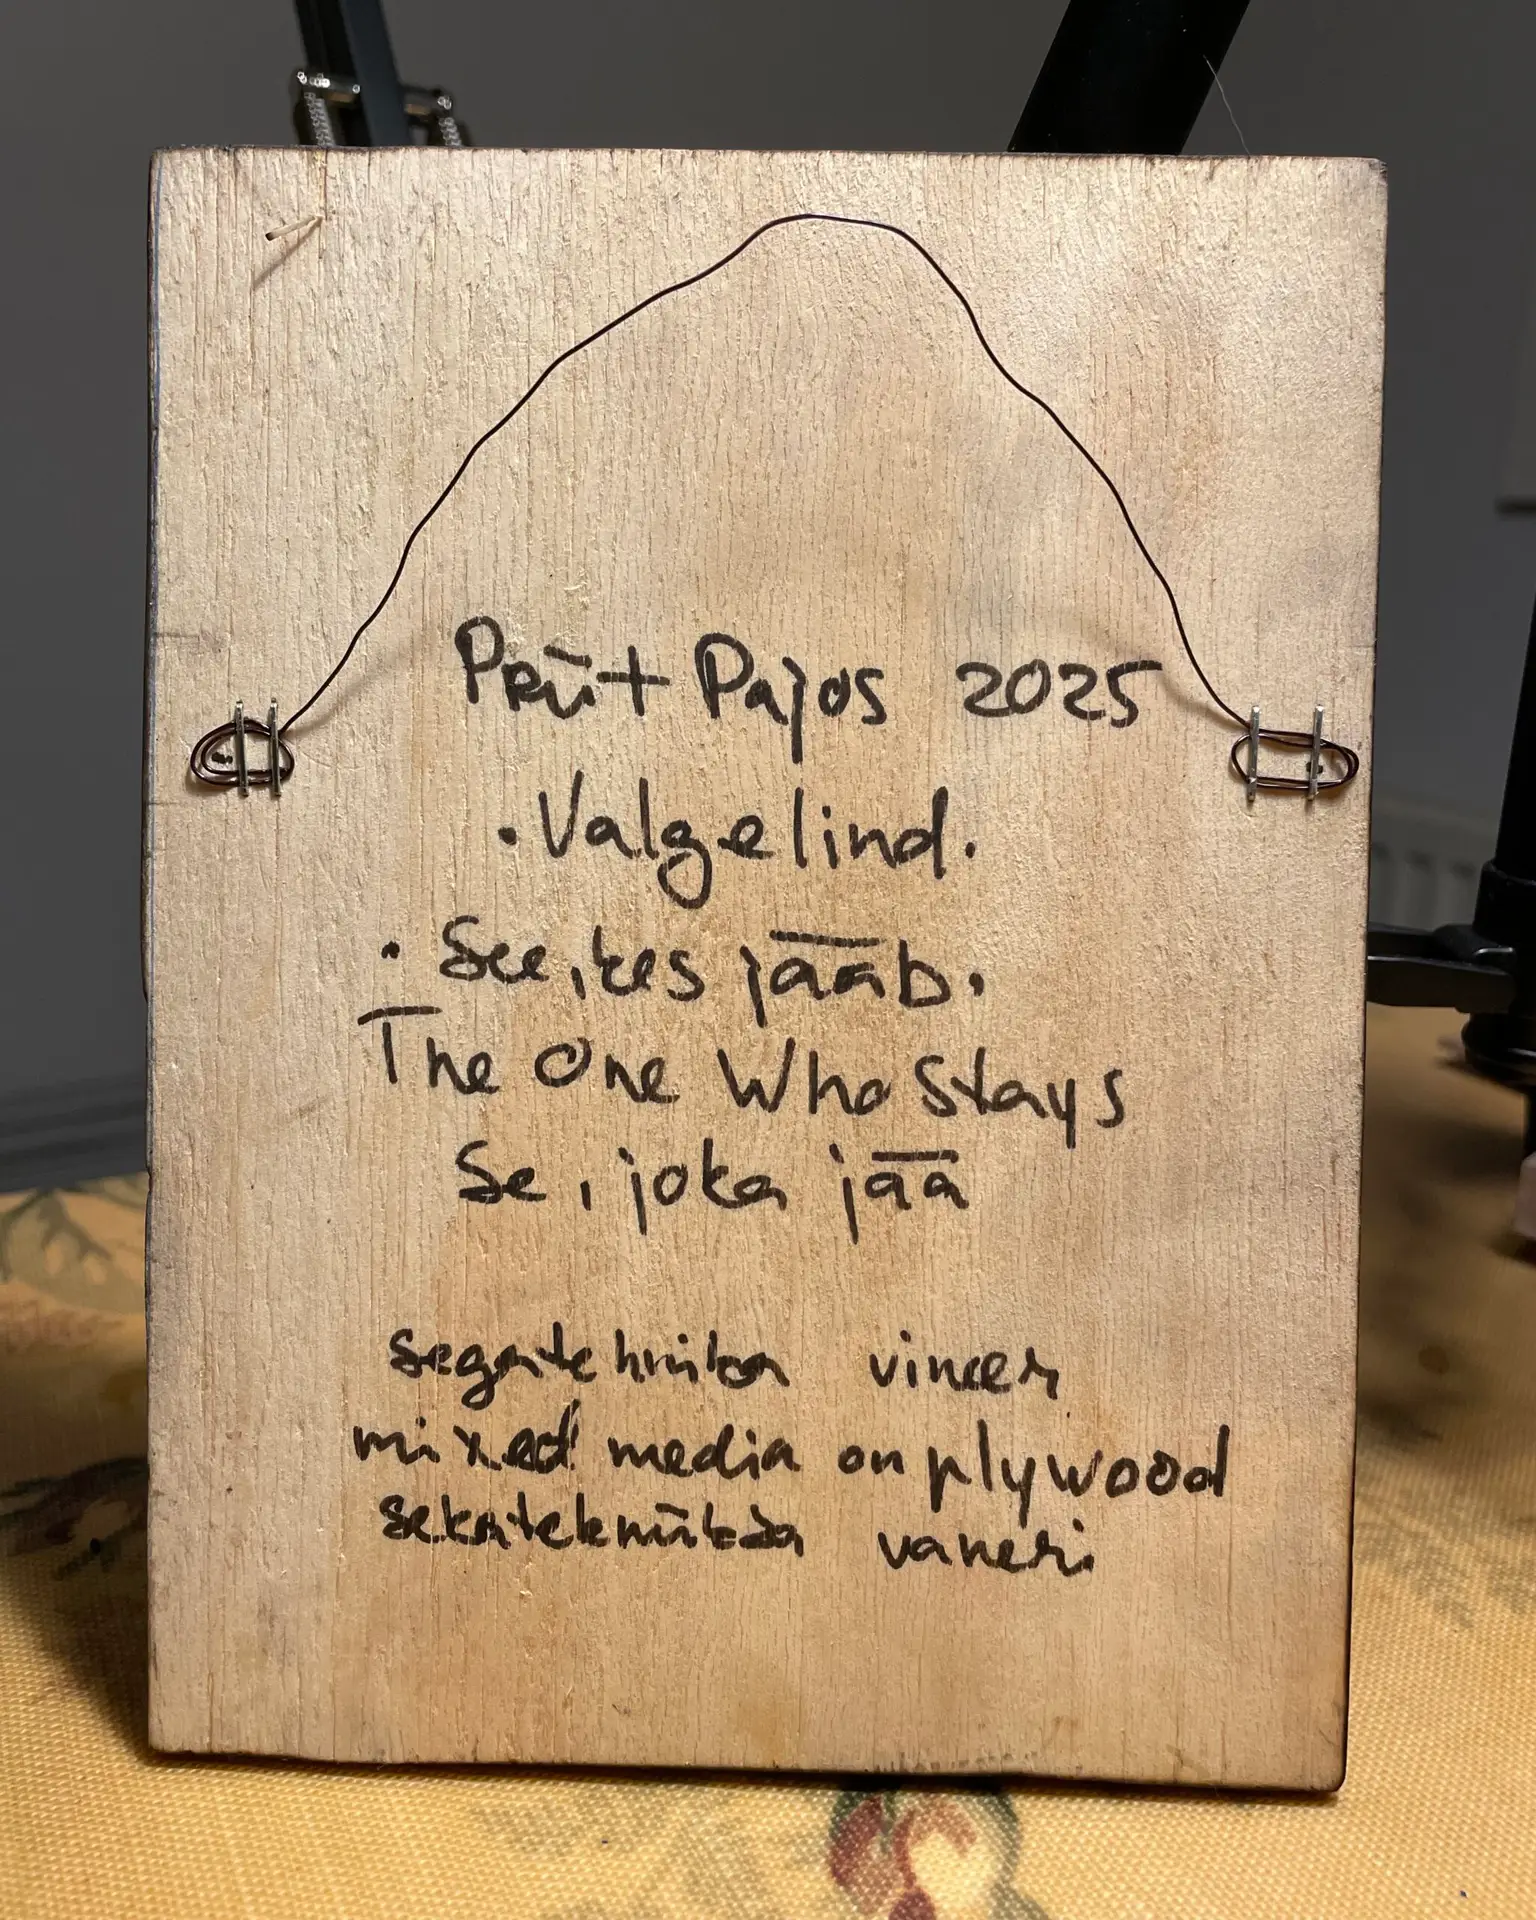 Priit Pajos 2025
. Valgelind.
. See, kes jääb.
The One Who Stays
Se, joka jää
segatehnika vineer
mixed media on plywood
sekatekniikka vaneri